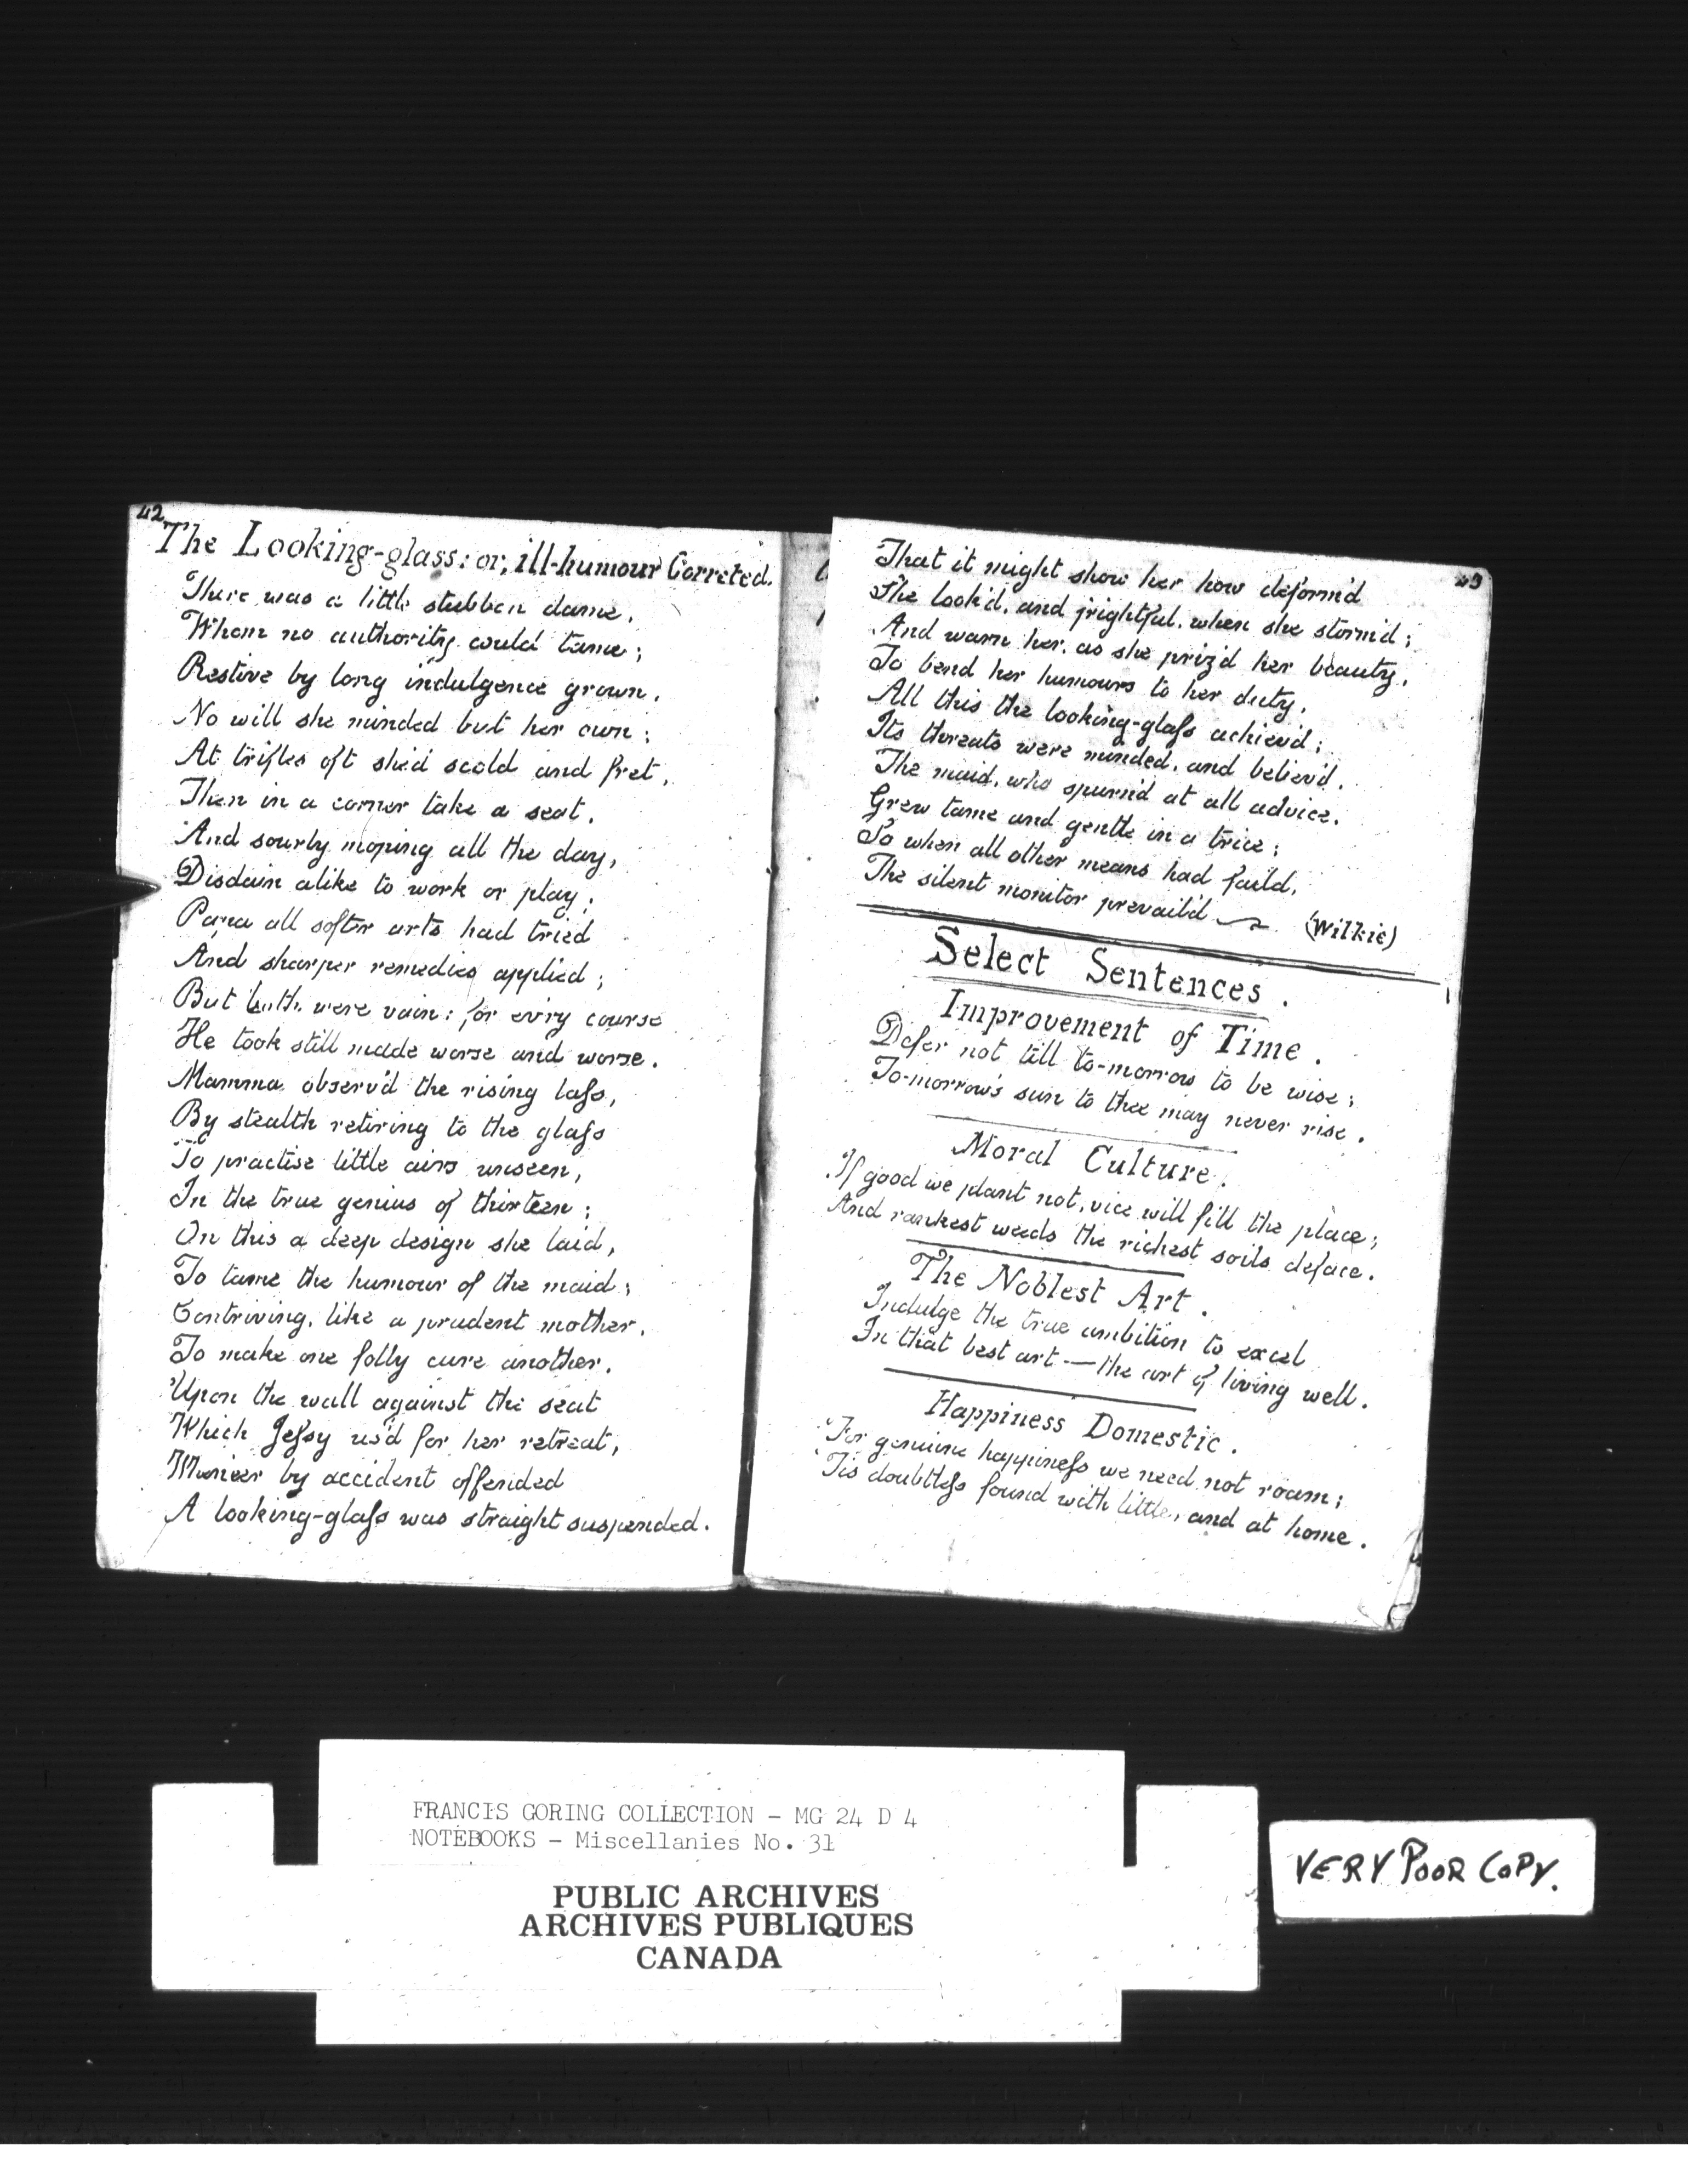 42
The Looking-glass: or, ill-humour Correted.
There was a little stubborn dame,
Whom no authority could tame;
Restive by long indulgence grown,
No will she minded but her own;
At trifles oft she'd scold and fret,
Then in a corner take a seat,
And sourly moping all the day,
Disdain alike to work or play;
Papa all softer arts had tried
And sharper remedies applied;
But both were vain: for ev'ry course
He took still made worse and worse.
Mamma observ'd the rising lass,
By stealth retiring to the glass
To practise little airs unseen,
In the true genius of thirteen;
On this a deep design she laid,
To tame the humour of the maid;
Contriving, like a prudent mother,
To make one folly cure another.
Upon the wall against the seat
Which Jessy us'd for her retreat,
Whene'er by accident offended
A looking-glass was straight suspended.
43
That it might show her how deform'd
She look'd, and frightful, when she storm'd;
And warn her, as she priz'd her beauty,
To bend her humours to her duty,
All this the looking-glass achiev'd;
Its threats were minded, and believ'd.
The maid, who spurn'd at all advice,
Grew tame and gentle in a trice;
So when all other means had fail'd,
The silent monitor prevail'd (Wilkie)
Select Sentences.
Improvement of Time.
Defer not till to-morrow to be wise;
To-morrow's sun to thee may never rise.
Moral Culture.
If good we plant not, vice will fill the place;
And rankest weeds the richest soils deface.
The Noblest Art.
Indulge the true ambition to excel
In that best art — the art of living well.
Happiness Domestic.
For genuine happiness we need not roam;
'Tis doubtless found with little, and at home.
FRANCIS GORING COLLECTION - MG 24 D 4
NOTEBOOKS - Miscellanies No. 31
PUBLIC ARCHIVES
ARCHIVES PUBLIQUES
CANADA
VERY POOR COPY.